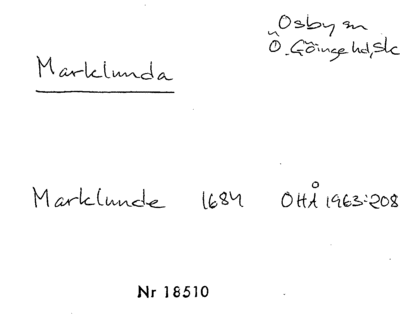 Osby sn
Ö. Göinge hd, Sk
Marklunda
Marklunde 1684 OHÅ 1963:208
Nr 18510